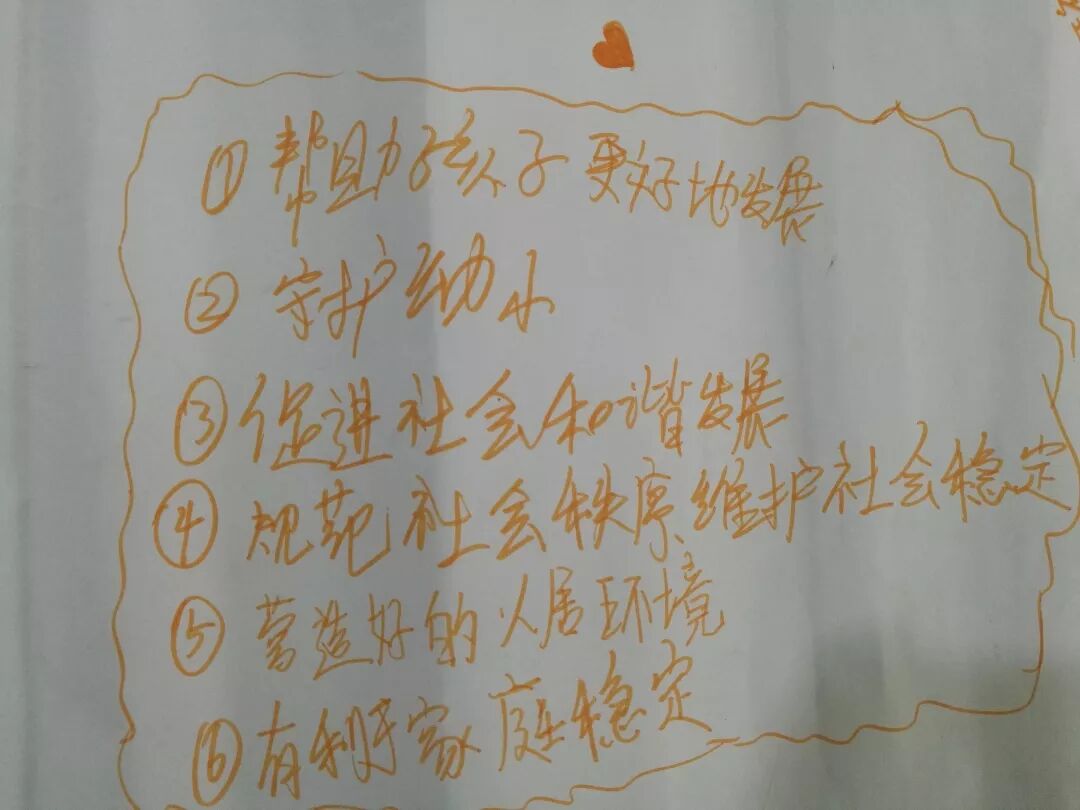 ① 帮助孩子更好地发展
② 守护幼小
③ 促进社会和谐发展
④ 规范社会秩序维护社会稳定
⑤ 营造好的人居环境
⑥ 有利于家庭稳定